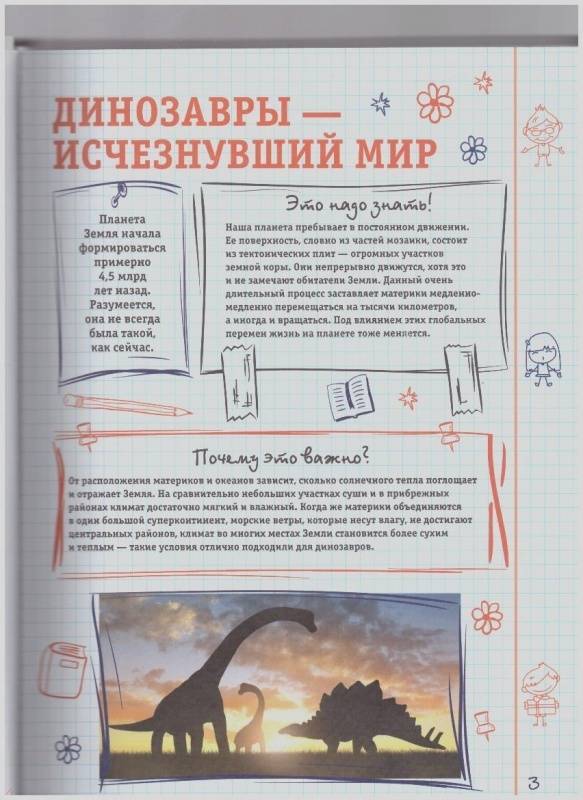 ДИНОЗАВРЫ —
ИСЧЕЗНУВШИЙ МИР
Планета
Земля начала
формироваться
примерно
4,5 млрд
лет назад.
Разумеется,
она не всегда
была такой,
как сейчас.
Это надо знать!
Наша планета пребывает в постоянном движении.
Ее поверхность, словно из частей мозаики, состоит
из тектонических плит — огромных участков
земной коры. Они непрерывно движутся, хотя это
и не замечают обитатели Земли. Данный очень
длительный процесс заставляет материки медленно-
медленно перемещаться на тысячи километров,
а иногда и вращаться. Под влиянием этих глобальных
перемен жизнь на планете тоже меняется.
Почему это важно?
От расположения материков и океанов зависит, сколько солнечного тепла поглощает
и отражает Земля. На сравнительно небольших участках суши и в прибрежных
районах климат достаточно мягкий и влажный. Когда же материки объединяются
в один большой суперконтинент, морские ветры, которые несут влагу, не достигают
центральных районов, климат во многих местах Земли становится более сухим
и теплым — такие условия отлично подходили для динозавров.
3